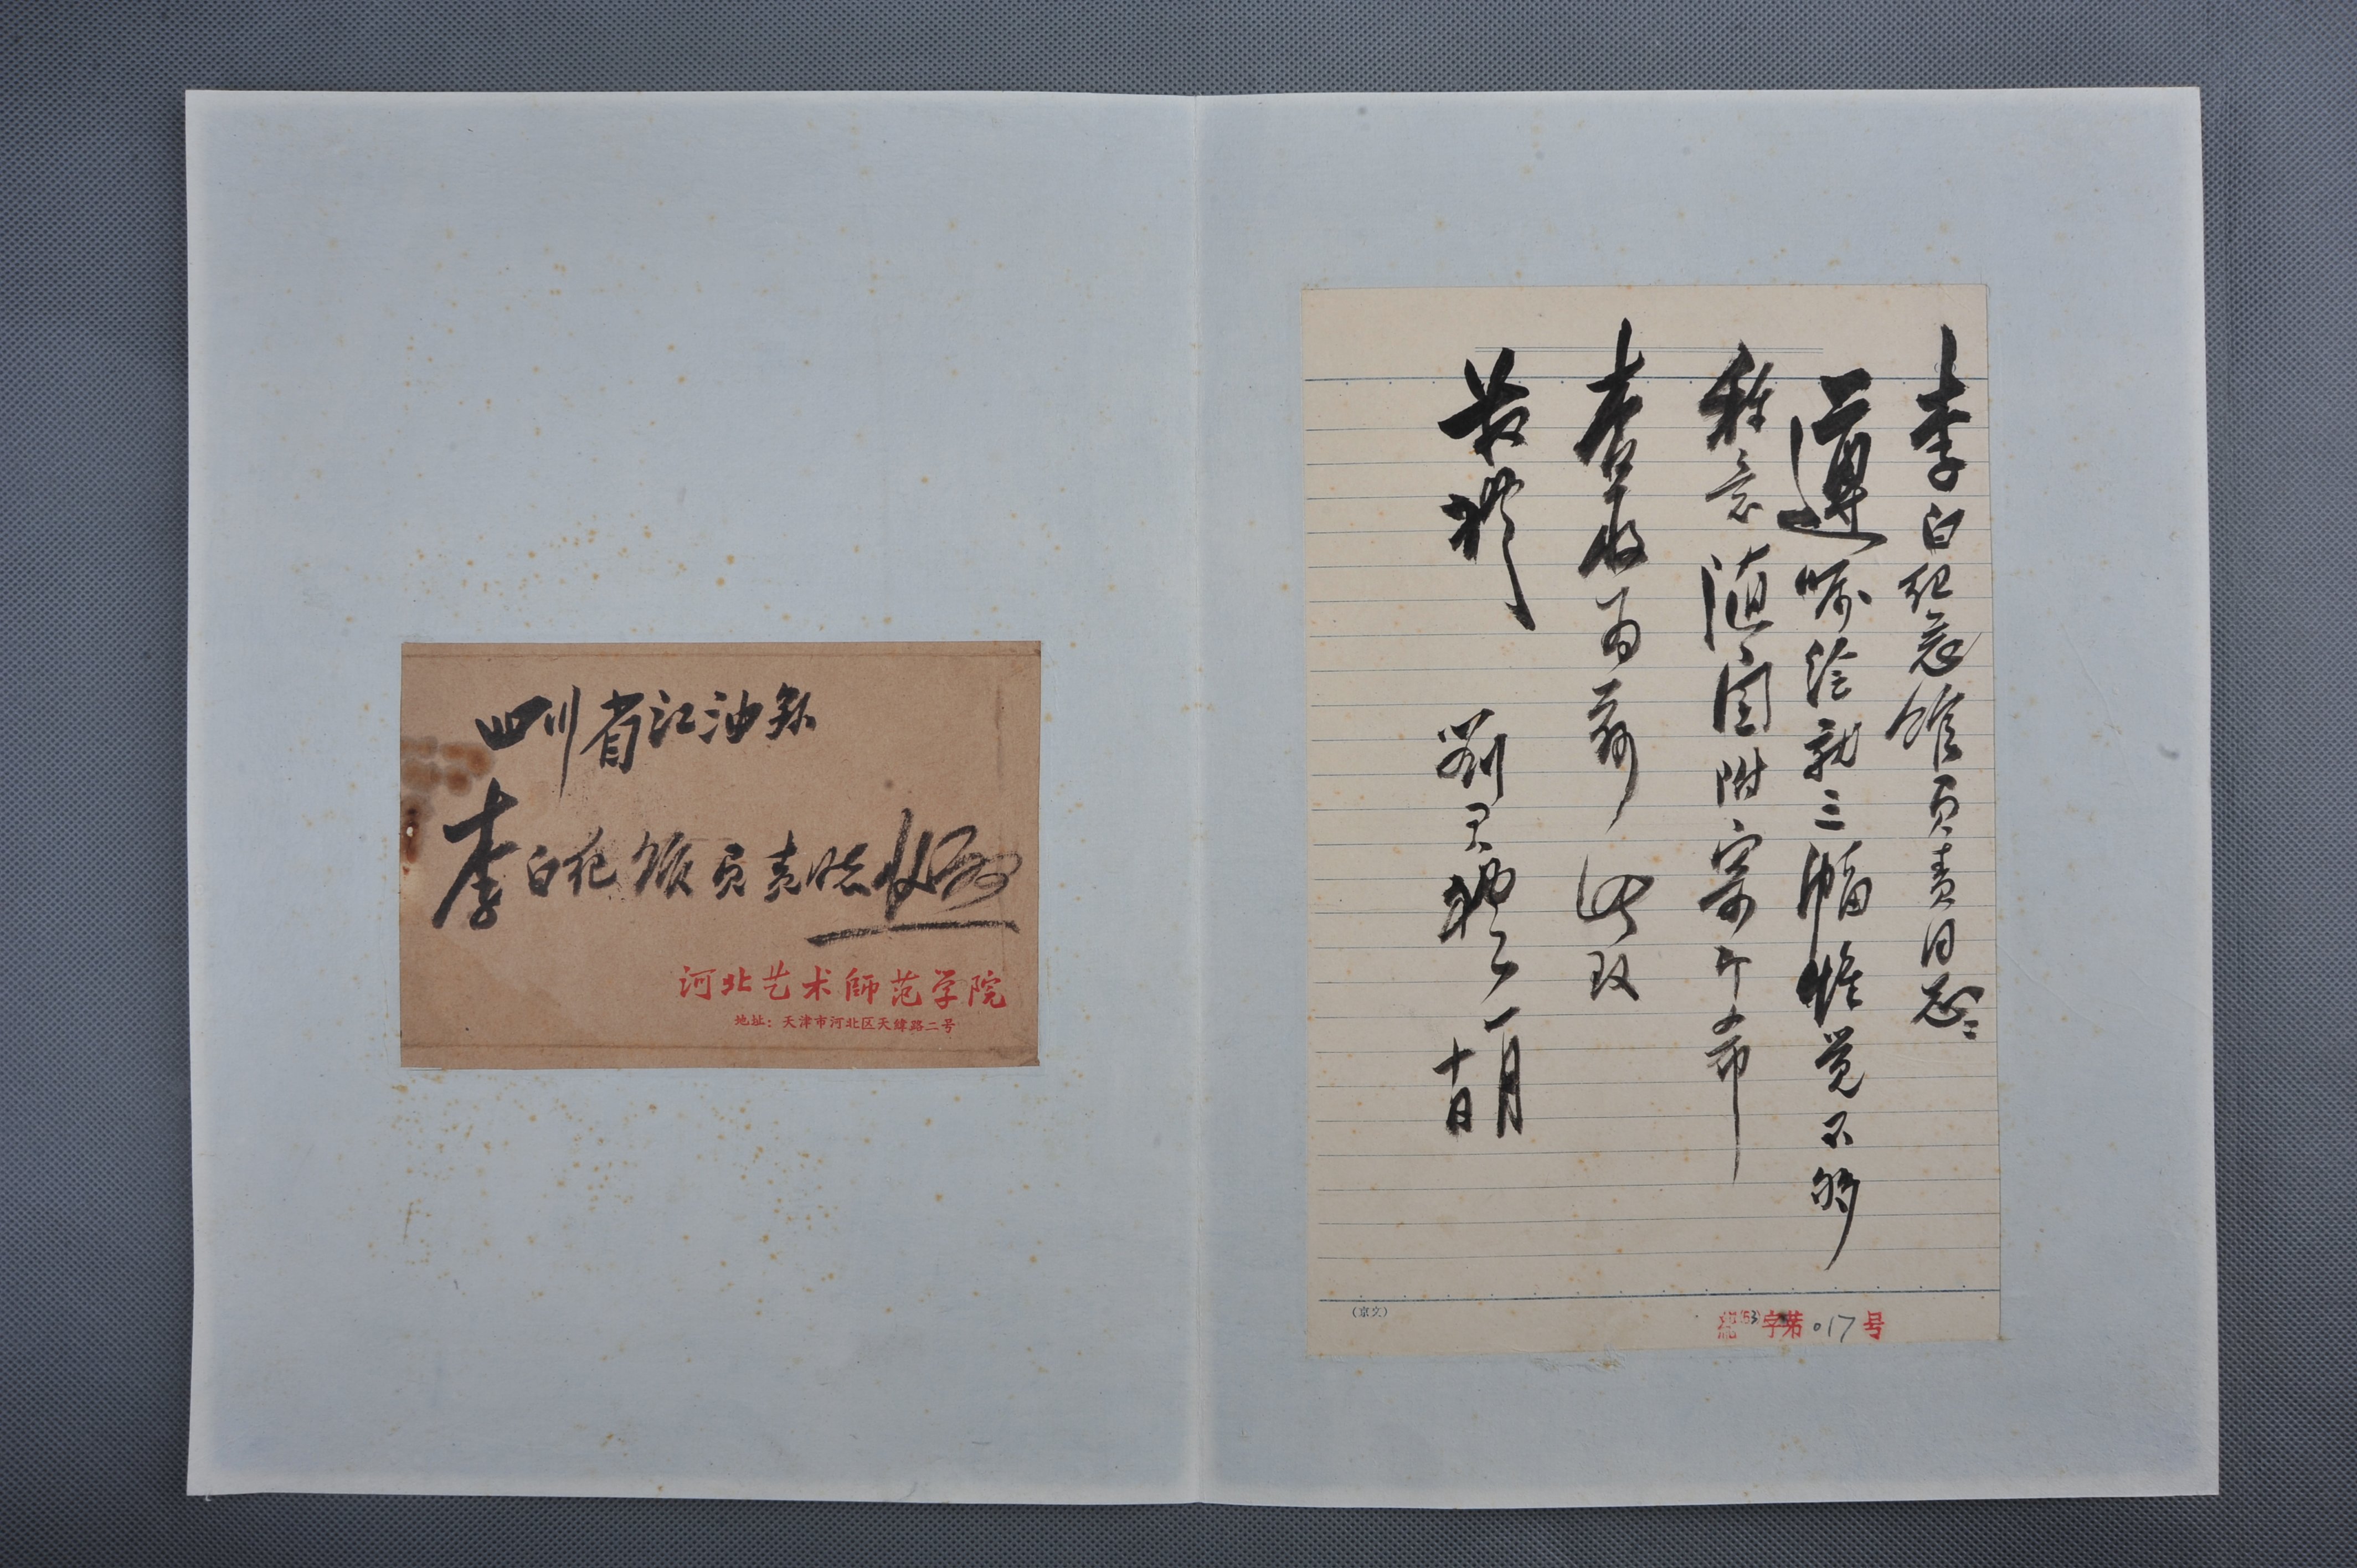 四川省江油县
李白纪馆负责同志收刘
河北艺术師范学院
地址：天津市河北区天緯路二号
李白纪念馆负责同志：
遵嘱绘就三幅惟觉不够
称意随函附寄即希
查收为荷 此致
敬禮 劉君禮 一月
十日
(京文)
纪(63)字第017号